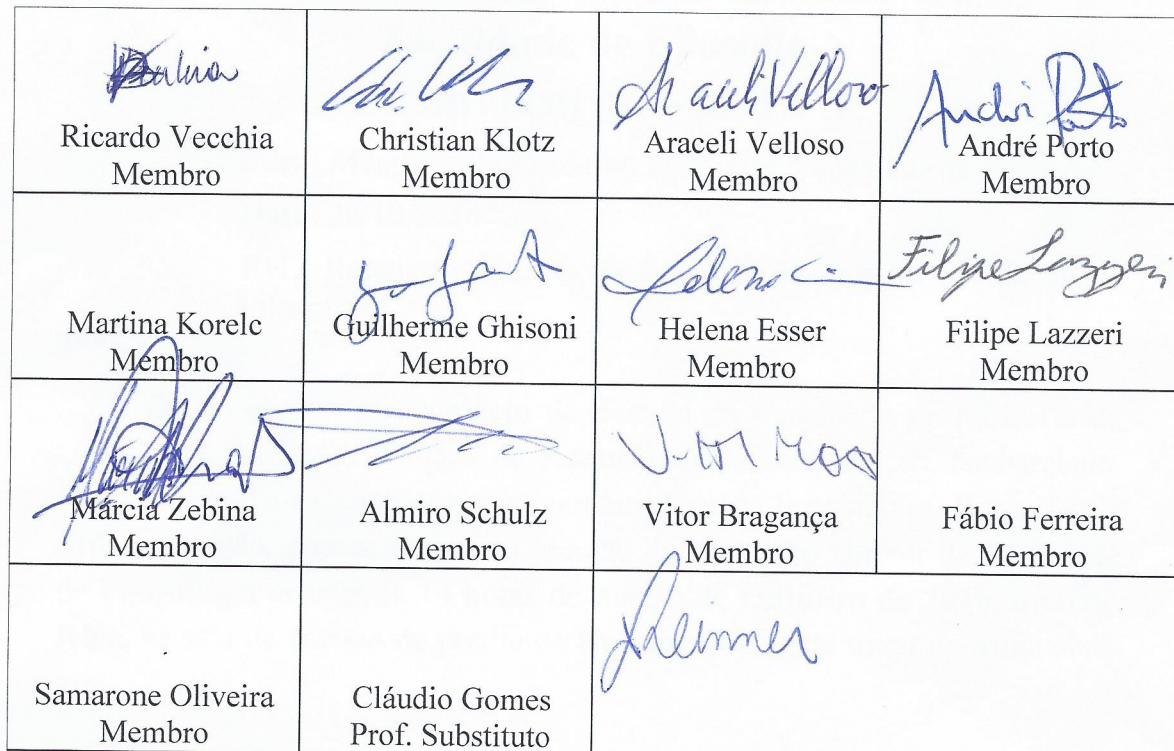 Ricardo Vecchia
Membro
Christian Klotz
Membro
Araceli Velloso
Araceli Velloso
Membro
André Porto
André Porto
Membro
Martina Korelc
Membro
Guilherme Ghisoni
Membro
Helena Esser
Membro
Filipe Lazzeri
Filipe Lazzeri
Membro
Márcia Zebina
Membro
Almiro Schulz
Membro
Vitor Bragança
Membro
Fábio Ferreira
Membro
Samarone Oliveira
Membro
Cláudio Gomes
Prof. Substituto